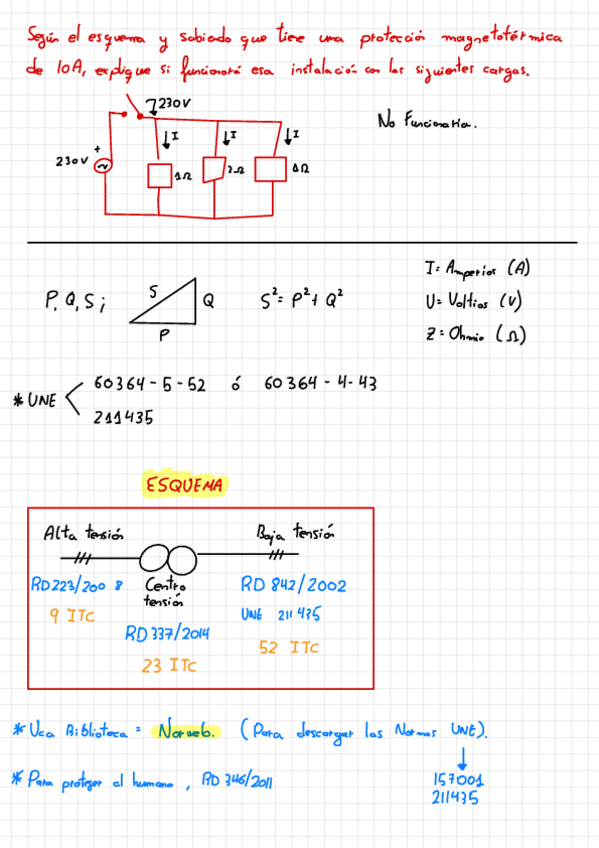 Según el esquema y sabiendo que tiene una protección magnetotérmica
de 10A, explique si funcionará esa instalación con las siguientes cargas.
230V
I I I
No Funcionaría.
230V
+
1Ω 2Ω 1Ω
I = Amperios (A)
P, Q, S ;
S
Q
P
S² = P² + Q²
U = Voltios (V)
Z = Ohmio (Ω)
* UNE
60364-5-52 ó 60364-4-43
211435
ESQUEMA
Alta tensión
Baja tensión
RD 223/2008
Centro
tensión
RD 842/2002
9 ITC
UNE 211435
RD 337/2014
52 ITC
23 ITC
* Uca Biblioteca = Norweb. (Para descargar las Normas UNE).
* Para proteger al humano, RD 346/2011
157001
211435